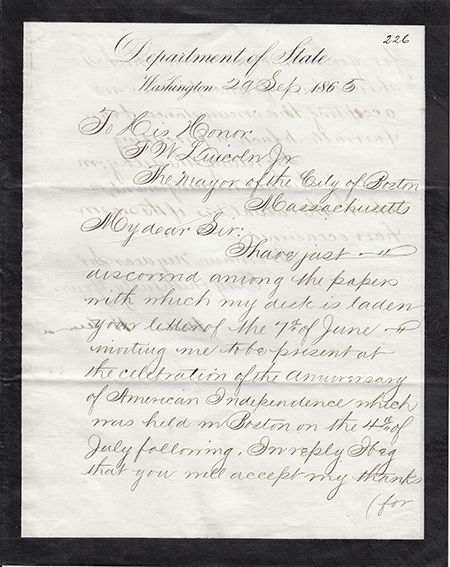 226
Department of State
Washington 29 Sep. 1865
To His Honor
F W Lincoln Jr
The Mayor of the City of Boston
Massachusetts
My dear Sir:
I have just
discovered among the papers
with which my desk is laden
your letter of the 7th of June
inviting me to be present at
the celebration of the anniversary
of American Independence which
was held in Boston on the 4th of
July following. In reply I beg
that you will accept my thanks
(for